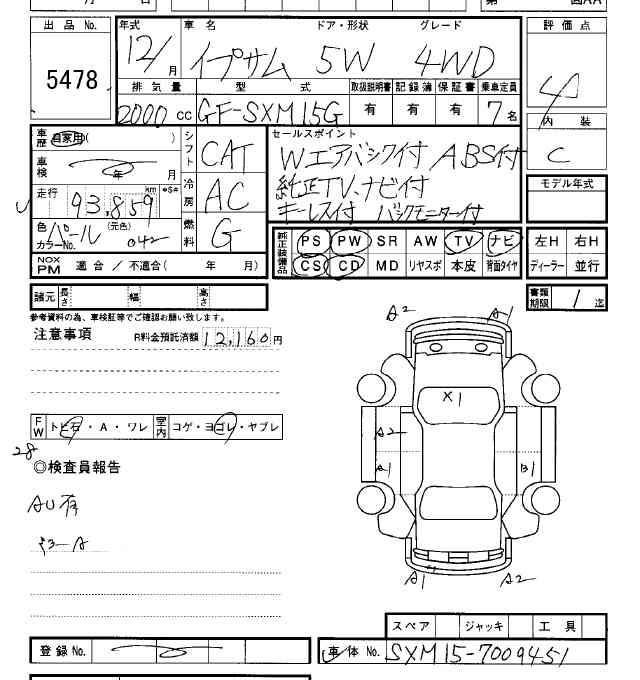 出品No. 年式 車名 ドア・形状 グレード 評価点
5478 12/月 イプサム 5W 4WD 4
排気量 型式 取扱説明書 記録簿 保証書 乗車定員
2000cc GF-SXM15G 有 有 有 7名
内装 C
車歴 自家用( ) シフト CAT セールスポイント
車検 年 月 Wエアバック付 ABS付
冷房 AC 純正TV、ナビ付
走行 93,859 km *$# キーレス付 バックモニター付
モデル年式
色 パール (元色) 燃料 G
カラーNo. 042
純正装備品 PS PW SR AW TV ナビ 左H 右H
CS CD MD リヤスポ 本皮 背面タイヤ ディーラー 並行
NOX PM 適合 / 不適合( 年 月)
諸元 長さ 幅 高さ 書類期限 / 迄
参考資料の為、車検証等でご確認お願い致します。
注意事項 R料金預託済額 12,160円
A2 A-1
X1
FW トビ石・A・ワレ 室内 コゲ・ヨゴレ・ヤブレ
A2
28
◎検査員報告 A1 B1
AU有
ミラーA
A1 A2
スペア ジャッキ 工具
登録No. 車体No. SXM15-7009451